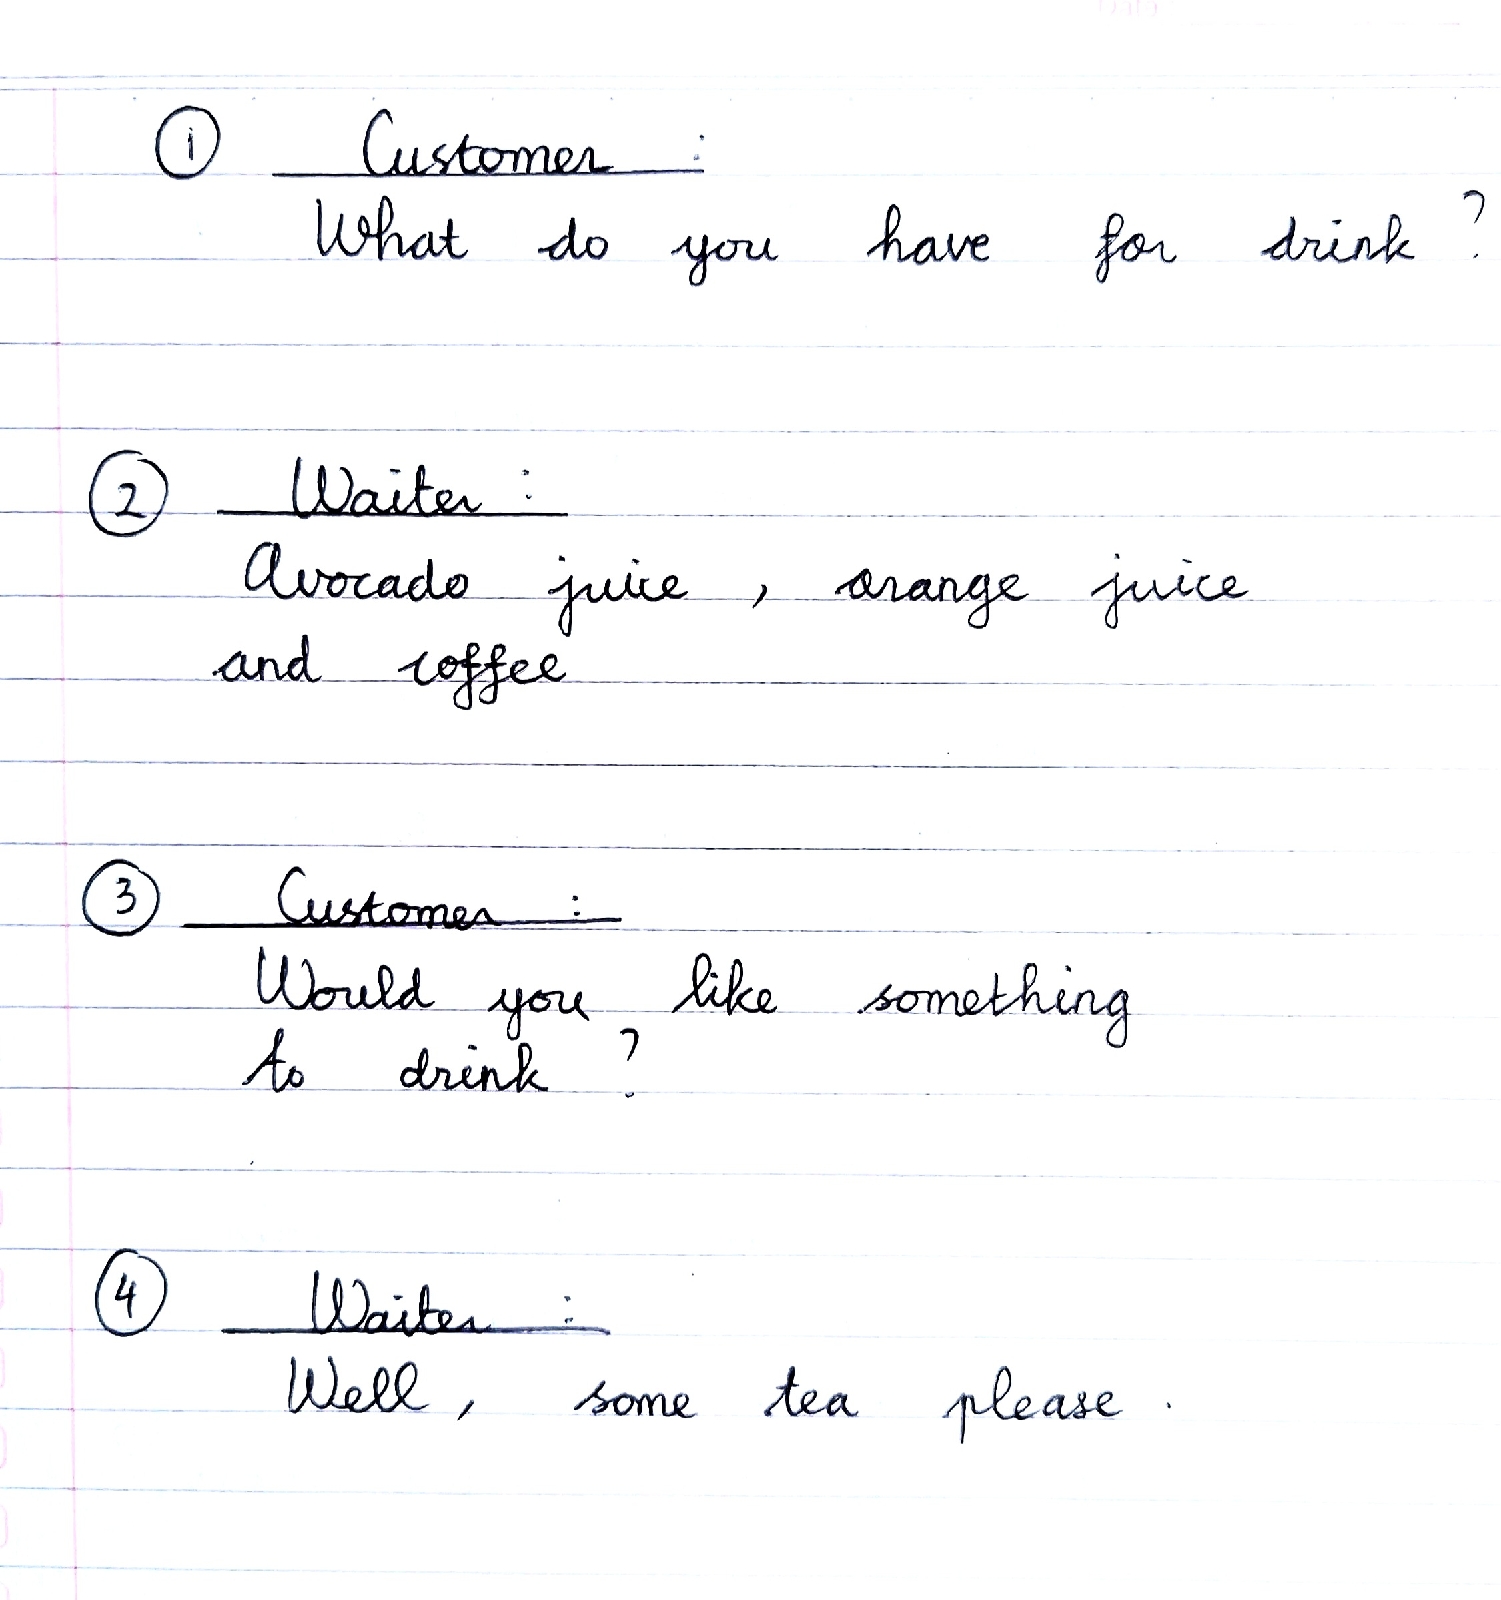 ① Customer :
What do you have for drink ?
② Waiter :
Avocado juice , orange juice
and coffee
③ Customer :
Would you like something
to drink ?
④ Waiter :
Well , some tea please .